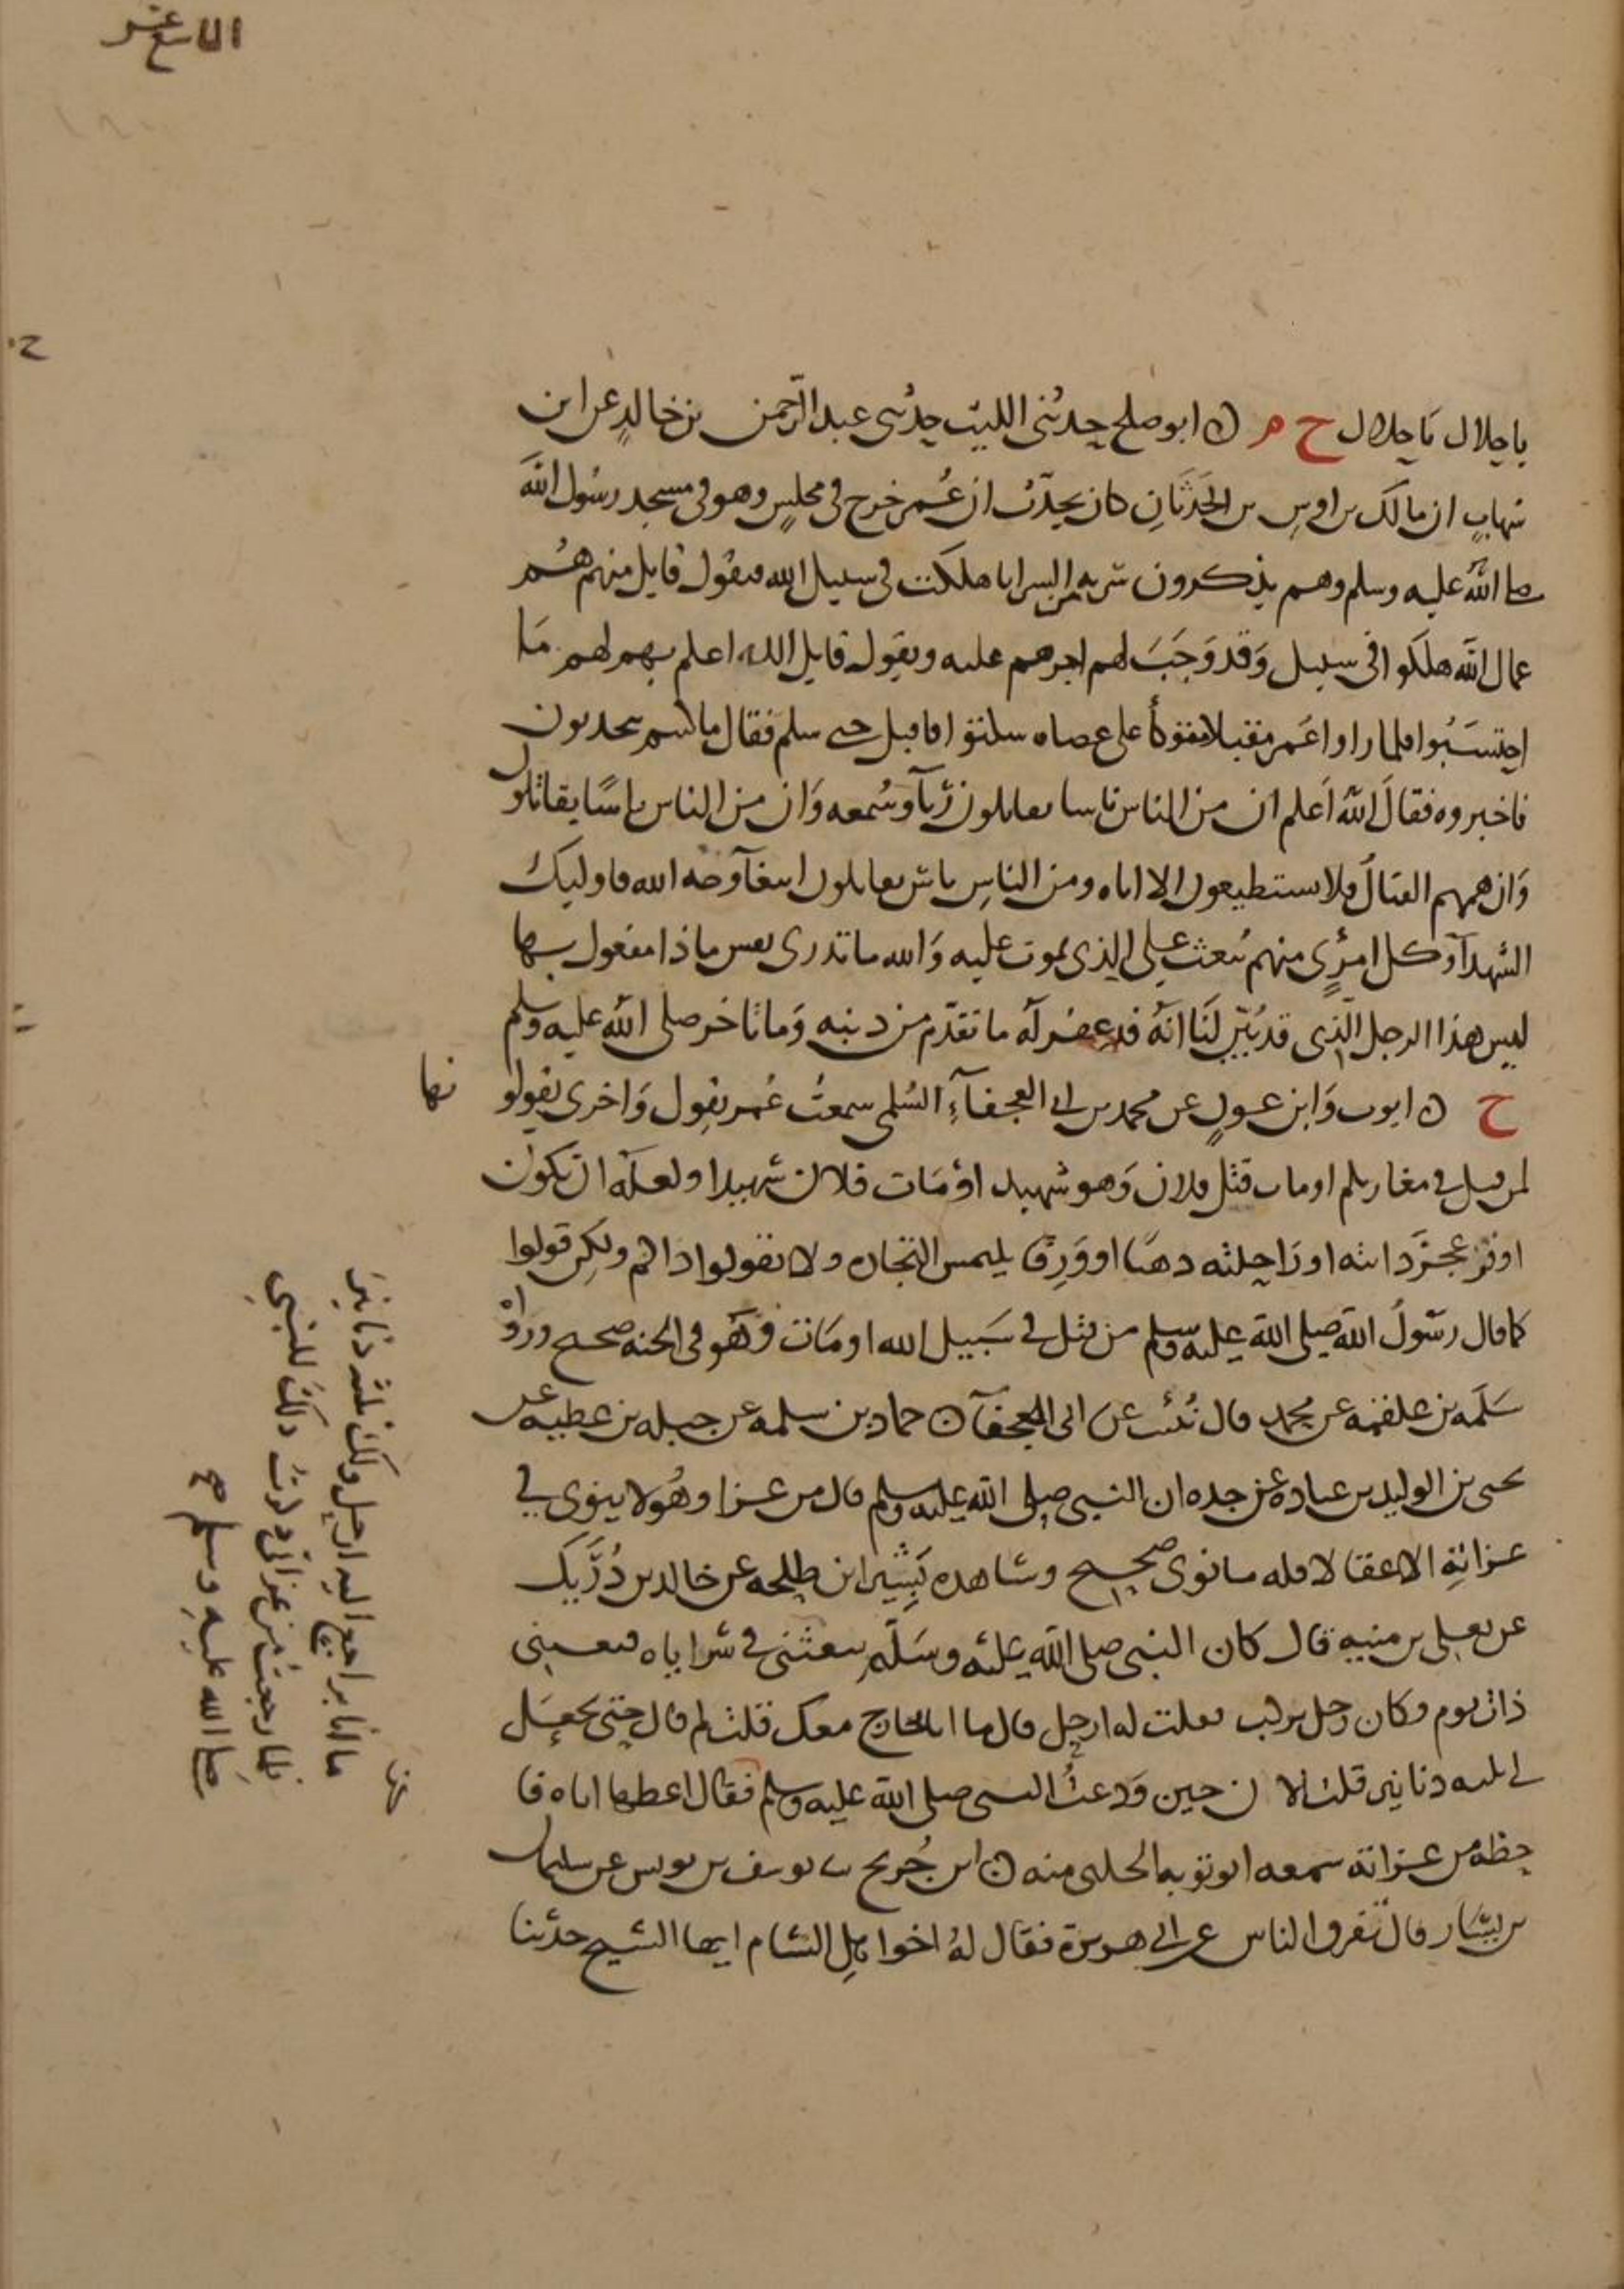 التاسع عشر
يا جلال يا جلال ح م ن ابو صلح حدثنى الليث حدثنى عبد الرحمن بن خالد عن ابن
شهاب ان مالك بن اوس بن الحدثان كان يحدث ان عمر خرج فى مجلس وهو فى مسجد رسول الله
صلى الله عليه وسلم وهم يذكرون سرية من السرايا هلكت فى سبيل الله فيقول قايل منهم هم
عمال الله هلكوا فى سبيل وقد وجب لهم اجرهم عليه ويقول قايل الله اعلم بهم لهم ما
احتسبوا فلما راوا عمر مقبلا متوكأ على عصاه سكتوا فاقبل حتى سلم فقال ما كنتم تحدثون
فاخبروه فقال الله اعلم ان من الناس ناسا يقاتلون رئآ وسمعه وان من الناس ناسًا يقاتلون
وان همهم القتال فلا يستطيعون الا اياه ومن الناس ناس يقاتلون ابتغآ وجه الله فاوليك
الشهدآ وكل امرئ منهم يبعث على الذى يموت عليه والله ما تدرى نفس ماذا مفعول بها
ليس هذا الرجل الذى قد بين لنا انه قد غفر له ما تقدم من ذنبه وما تاخر صلى الله عليه وسلم
ح ن ايوب وابن عون عن محمد بن ابى العجفآء السلمى سمعت عمر يقول واخرى يقولو
نها
لمن قتل فى مغازيكم او مات قتل فلان وهو شهيد او مات فلان شهيدا ولعله ان يكون
اوقر عجز دابته او راحلته ذهبا او ورق يلتمس التجاره ولا تقولوا ذاكم ولكن قولوا
كما قال رسول الله صلى الله عليه وسلم من قتل فى سبيل الله او مات فهو فى الجنه صحيح ورواه
سلمه بن علقمه عن محمد قال نبئت عن ابى العجفآ ن حماد بن سلمه عن جبله بن عطيه عن
يحيى بن الوليد بن عباده عن جده ان النبى صلى الله عليه وسلم قال من غزا وهو لا ينوى فى
غزاته الا عقالا فله ما نوى صحيح وشاهده بشير ابن طلحه عن خالد بن دريك
عن يعلى بن منيه قال كان النبى صلى الله عليه وسلم يبعثنى فى سراياه فبعثنى
ذات يوم وكان رجل يركب فقلت له ارحل قال ما انا بخارج معك قلت لم قال حتى تجعل
لى ثلثه دنانير قلت الان حين ودعت النبى صلى الله عليه وسلم فقال اعطها اياه فا
حظه من غزاته سمعه ابو توبه الحلبى منه ن ابن جريج ثنا يوسف بن يونس عن سليمان
بن يسار قال تفرق الناس عن ابى هريرة فقال له اخوا اهل الشام ايها الشيخ حدثنا
ما انا براجع اليه ارحل ولك ثلثه دنانير
فلما رجعت من غزاتى ذكرت ذلك للنبى
صلى الله عليه وسلم صح